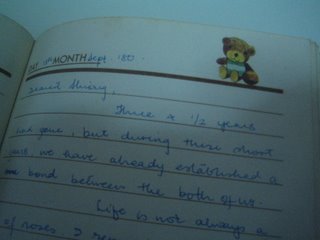 DAY 18th MONTH Sept. 1887.
Dearest Sherry,
Three & 1/2 years
had gone, but during these short
years, we have already established a
bond between the both of us.
Life is not always a
of roses, I